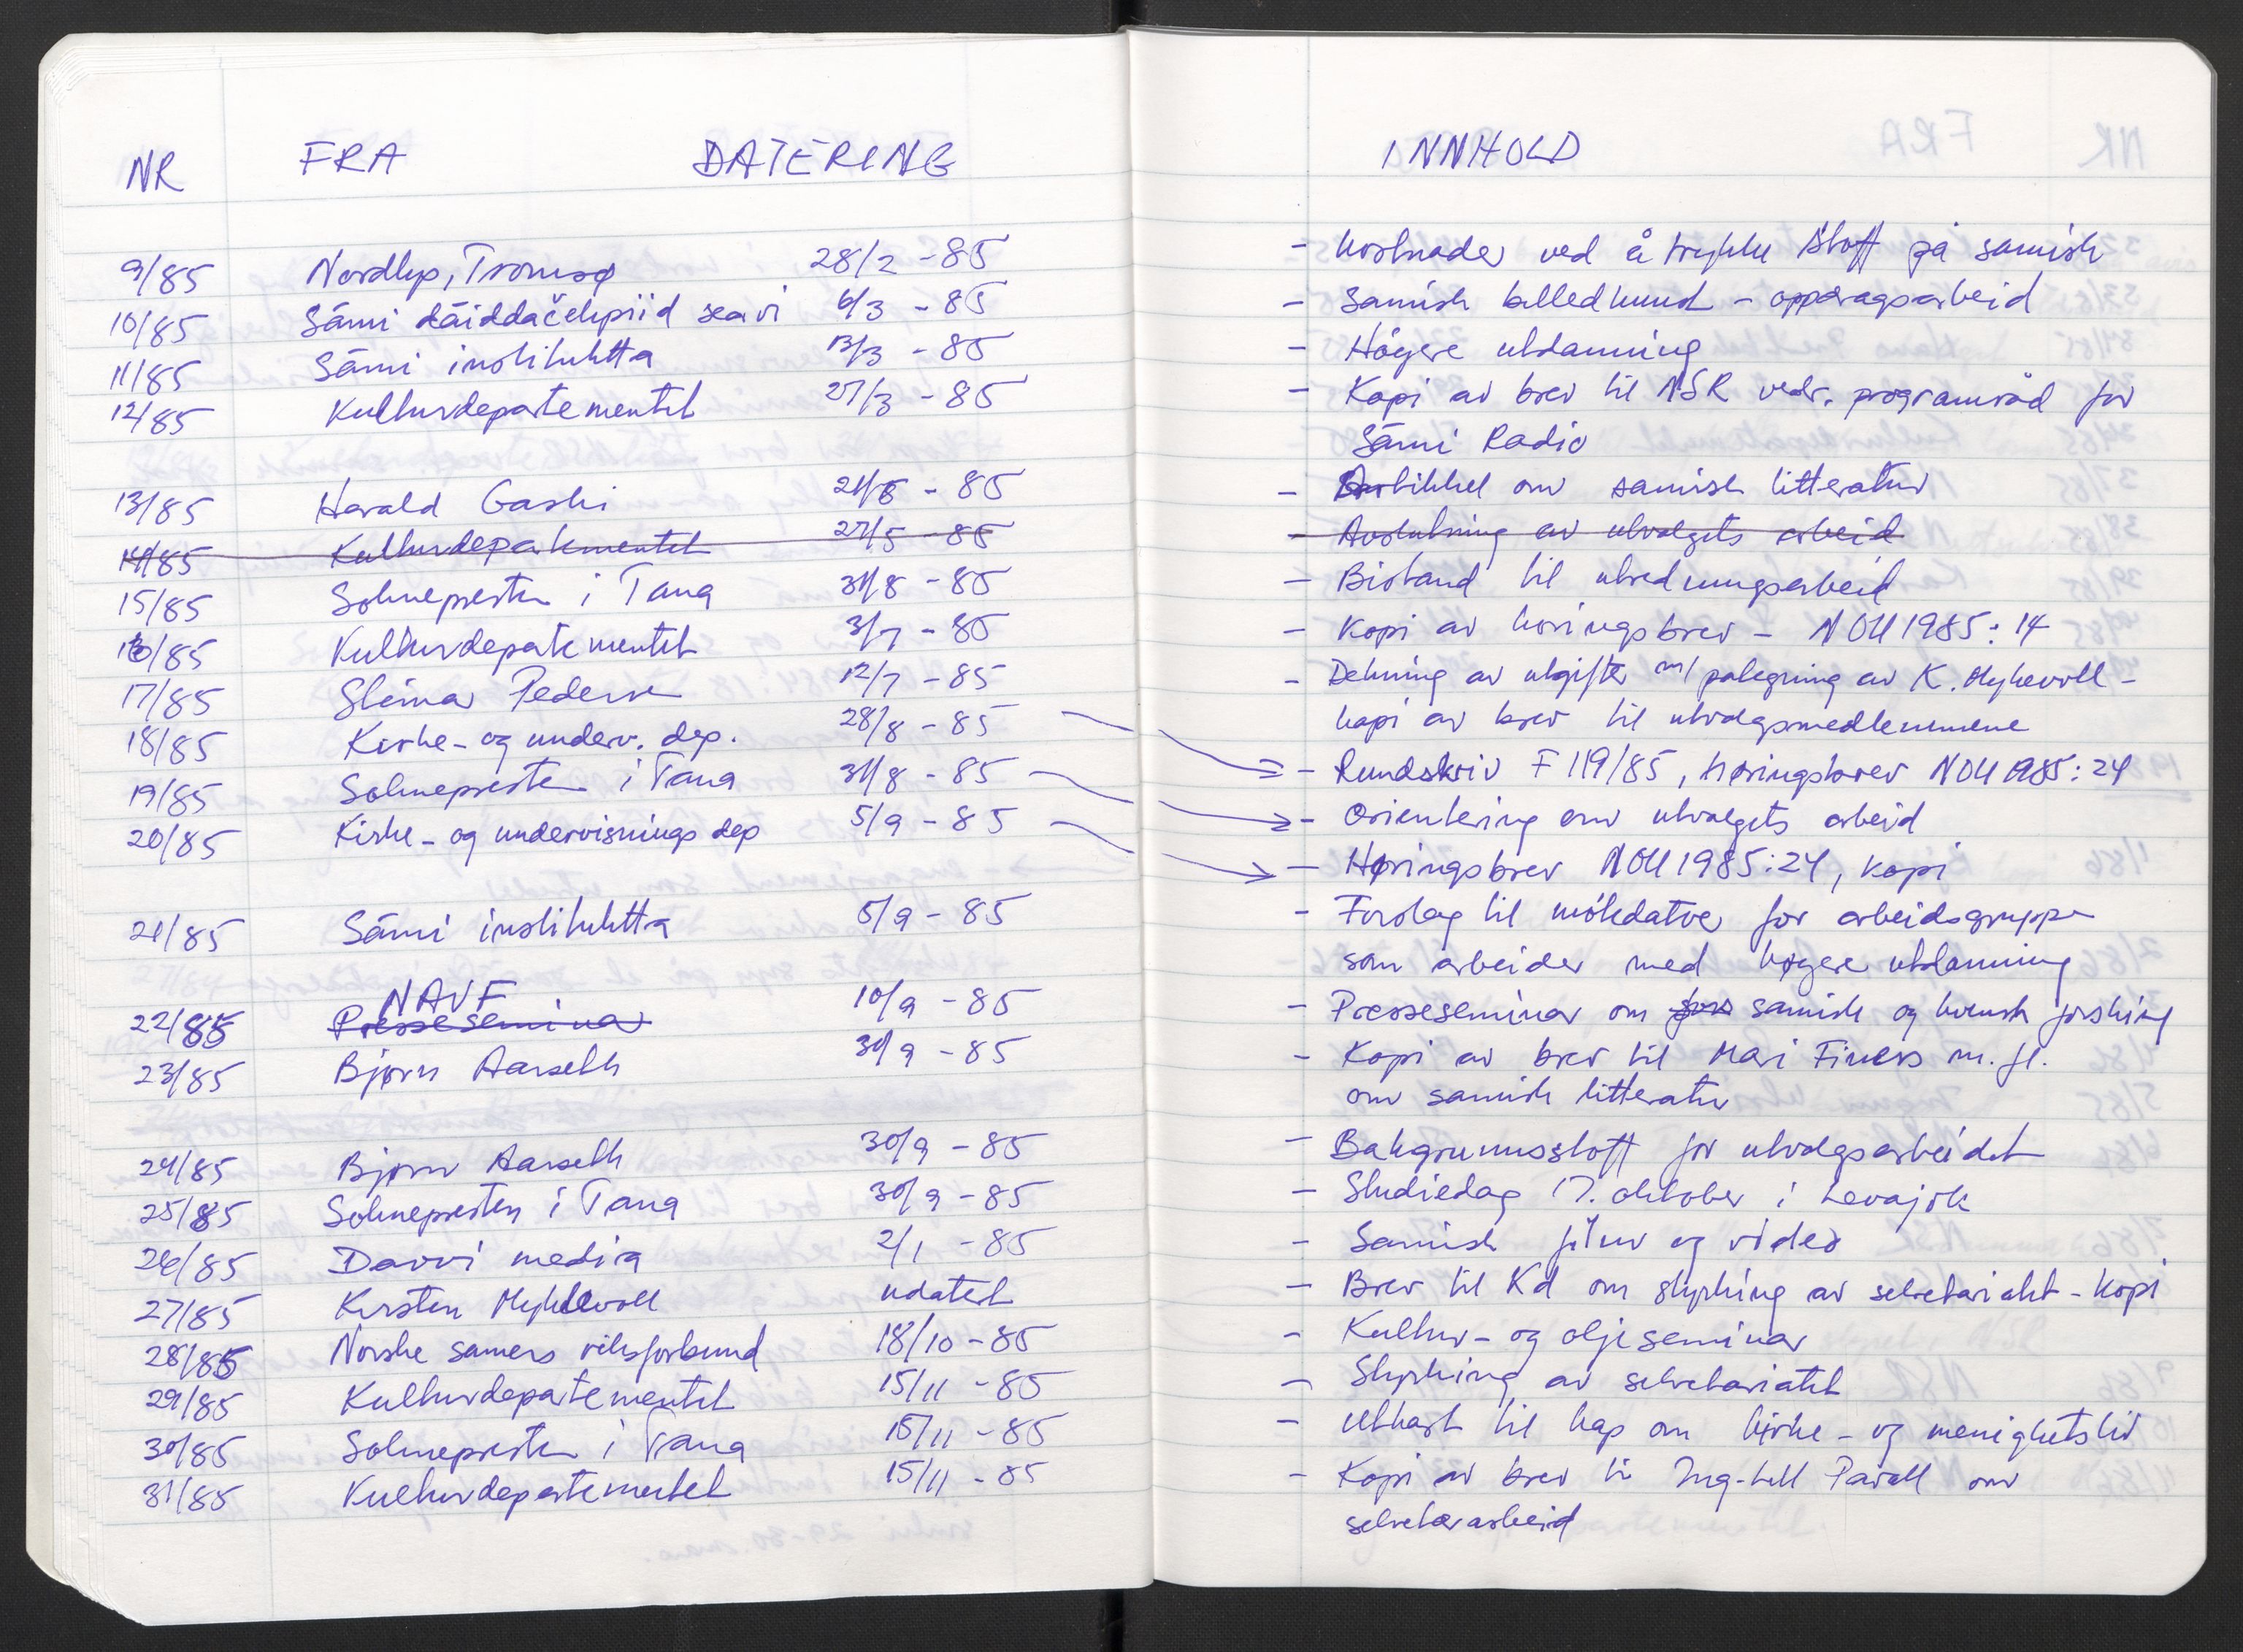 NR FRA DATERING INNHOLD
9/85 Nordlys, Tromsø 28/2 - 85 - kostnader ved å trykke stoff på samisk
10/85 Sámi dáiddačehpiid searvi 6/3 - 85 - Samisk billedkunst - oppdragsarbeid
11/85 Sámi instituhtta 13/3 - 85 - Høgere utdanning
12/85 Kulturdepartementet 27/3 - 85 - Kopi av brev til NSR vedr. programråd for
Sámi Radio
13/85 Harald Gaski 21/5 - 85 - Artikkel om samisk litteratur
14/85 Kulturdepartementet 27/5 - 85 - Avslutning av utvalgets arbeid
15/85 Soknepresten i Tana 31/8 - 85 - Bistand til utredningsarbeid
16/85 Kulturdepartementet 3/7 - 85 - Kopi av høringsbrev - NOU 1985: 14
17/85 Steinar Pedersen 12/7 - 85 - Dekning av utgifter m/ pålegning av K. Myklevoll -
kopi av brev til utvalgsmedlemmene
18/85 Kirke- og underv. dep. 28/8 - 85 - Rundskriv F 119/85, høringsbrev NOU 1985: 24
19/85 Soknepresten i Tana 31/8 - 85 - Orientering om utvalgets arbeid
20/85 Kirke- og undervisnings dep 5/9 - 85 - Høringsbrev NOU 1985: 24, kopi
21/85 Sámi instituhtta 5/9 - 85 - Forslag til møtedatoer for arbeidsgruppe
som arbeider med høgere utdanning
22/85 Presseseminar NAVF 10/9 - 85 - Presseseminar om fors samisk og kvensk forsking
23/85 Bjørn Aarseth 30/9 - 85 - Kopi av brev til Mari Finers m. fl.
om samisk litteratur
24/85 Bjørn Aarseth 30/9 - 85 - Bakgrunnsstoff for utvalgsarbeidet
25/85 Soknepresten i Tana 30/9 - 85 - Studiedag 17. oktober i Levajok
26/85 Davvi media 2/1 - 85 - Samisk film og video
27/85 Kirsten Myklevoll udatert - Brev til Kd om styrking av sekretariatet - kopi
28/85 Norske samers riksforbund 18/10 - 85 - Kultur- og oljeseminar
29/85 Kulturdepartementet 15/11 - 85 - Styrking av sekretariatet
30/85 Soknepresten i Tana 15/11 - 85 - Utkast til kap om kirke- og menighetsliv
31/85 Kulturdepartementet 15/11 - 85 - Kopi av brev til Ing-Lill Pavall om
sekretærarbeid